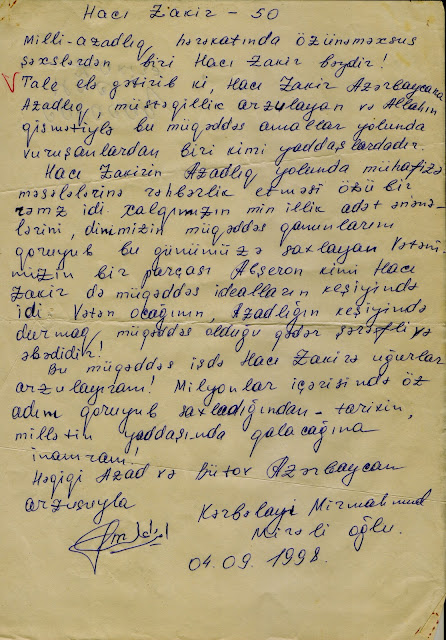 Hacı Zakir - 50
Milli-azadlıq hərəkatında özünəməxsus
şəxslərdən biri Hacı Zakir bəydir!
Tale elə gətirib ki, Hacı Zakir Azərbaycana
Azadlıq, müstəqillik arzulayan və Allahın
qisməti ylə bu müqəddəs amallar yolunda
vuruşanlardan biri kimi yaddaşlardadır.
Hacı Zakirin Azadlıq yolunda mühafizə
məsələlərinə rəhbərlik etməsi özü bir
rəmz idi. Xalqımızın min illik adət ənənə-
lərini, dinimizin müqəddəs qanunlarını
qoruyub bu günümüzə saxlayan Vətəni-
mizin bir parçası Abşeron kimi Hacı
Zakir də müqəddəs idealların keşiyində
idi. Vətən ocağının, Azadlığın keşiyində
durmaq müqəddəs olduğu qədər şərəfli və
əbədidir!
Bu müqəddəs işdə Hacı Zakirə uğurlar
arzulayıram! Milyonlar içərisində öz
adını qoruyub saxladığından - tarixin,
millətin yaddaşında qalacağına
inanıram!
Həqiqi Azad və Bütöv Azərbaycan
arzusuyla
Kərbəlayi Mirmahmud
Mirəli oğlu.
04.09.1998.